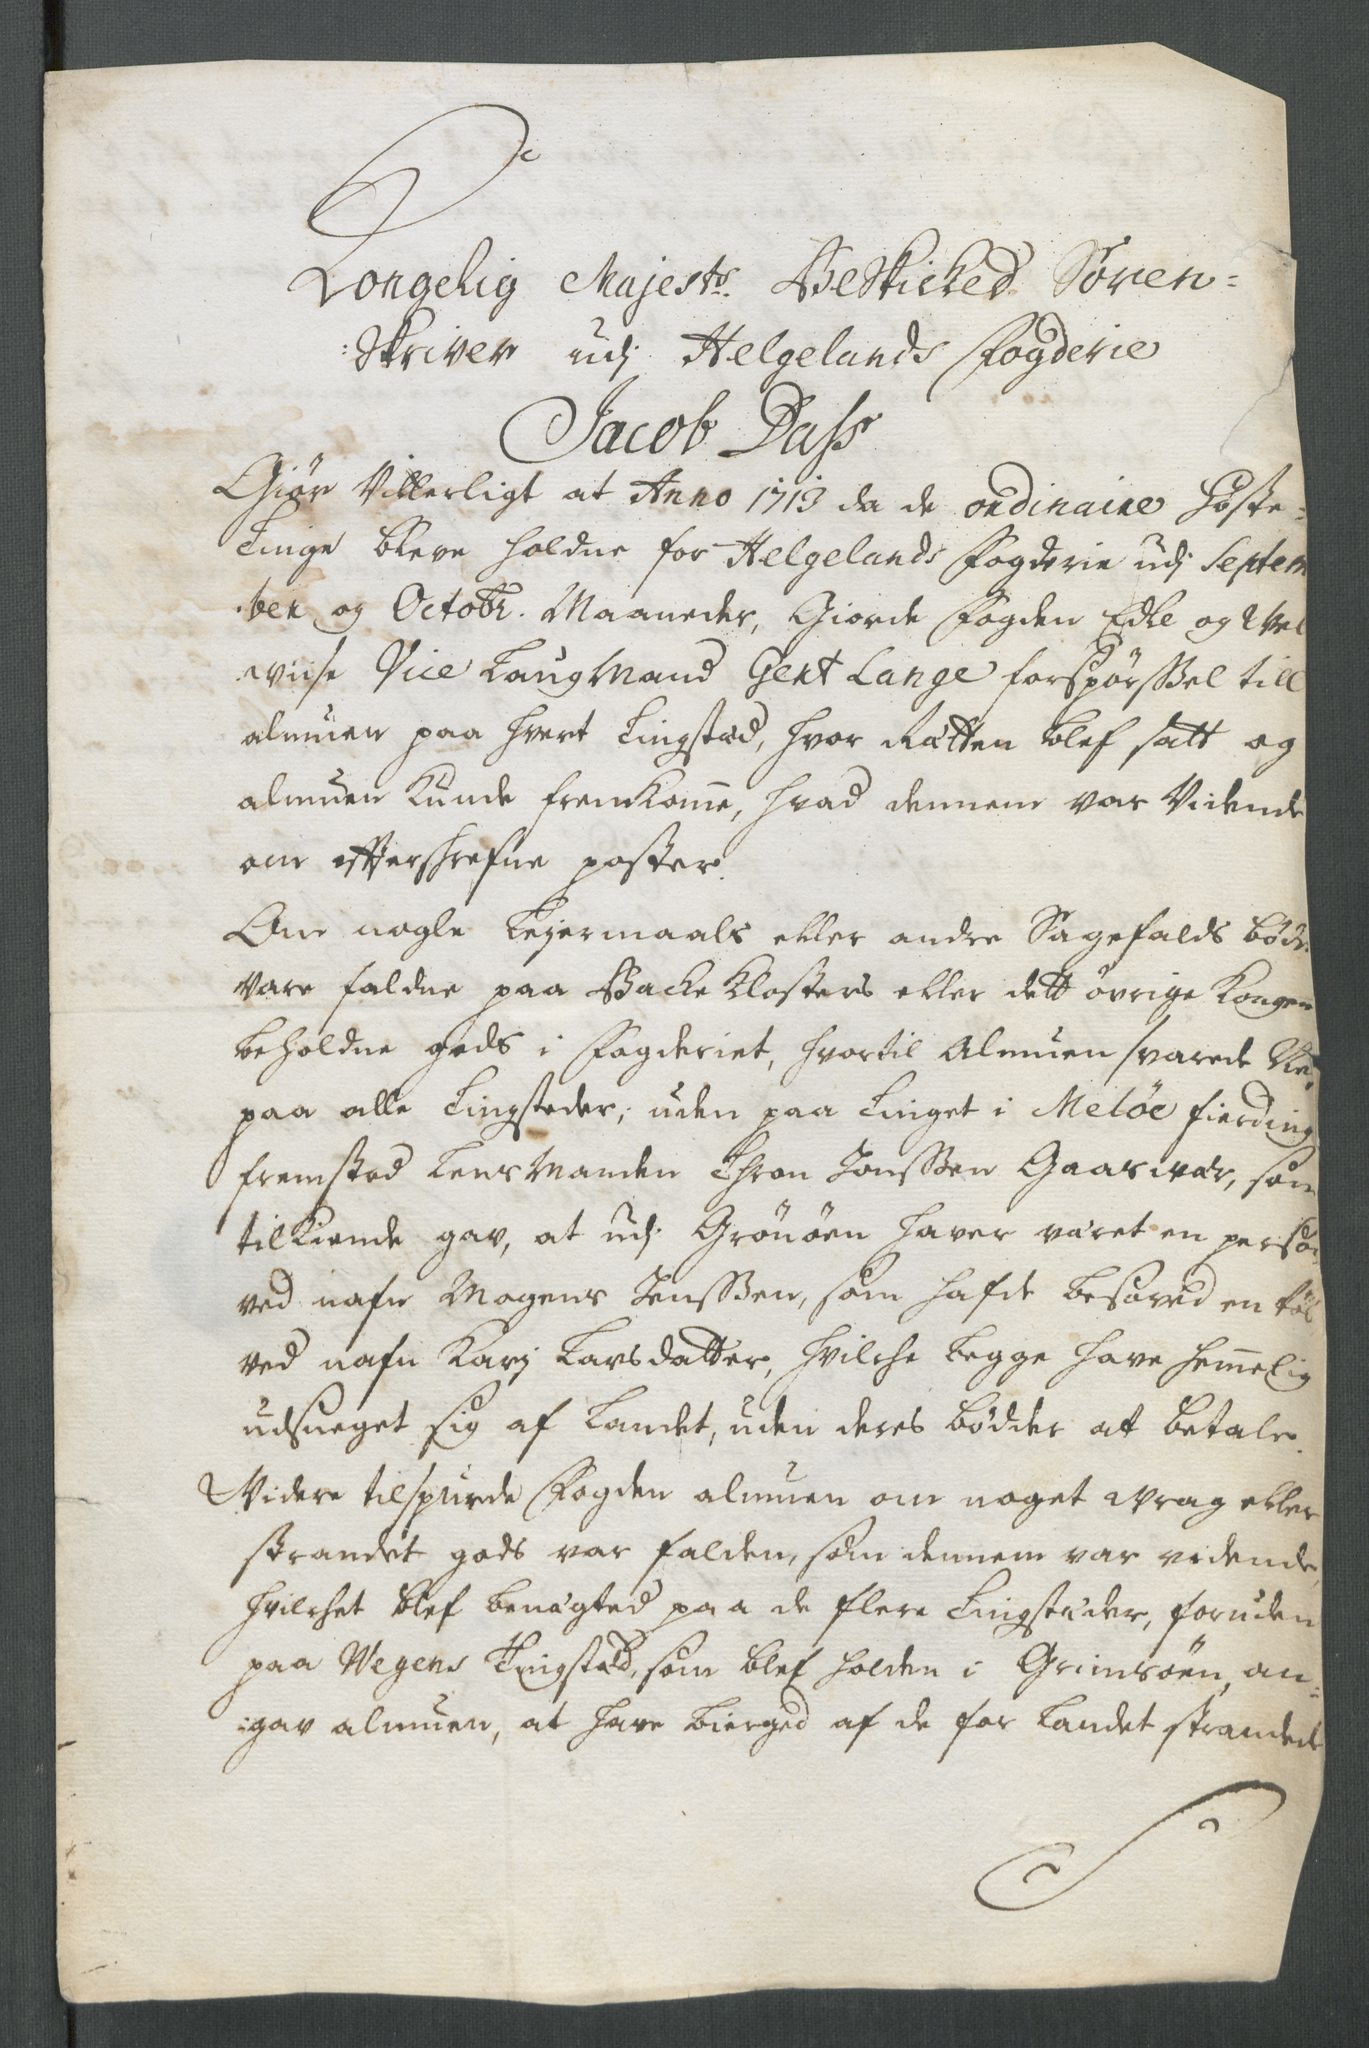 Kongelig Majests. Beskicked Soren=
:Skriver udj Helgelands Fogderie
Jacob Dass
Giør Vitterligt at Anno 1713 da de ordinaire Høste=
Tinge bleve holdne for Helgelands Fogderie udj Septem
:ber og Octobr. Maaneder, Giorde Fogden Edle og Vel
:wiise Vice Laugmand Gert Lange forspørssel till
almuen paa hvert Tingstæd, hvor Rætten blef satt og
almuen kunde fremkome, hvad dennem var Vidende
om effterschrefne poster.
Om nogle Leyermaals eller andre Sagefalds bødr.
vare faldne paa Backe Klosters eller dett øvrige Kongen
beholdne gods i Fogderiet, hvortil Almuen svarede Ney
paa alle Tingsteder, uden paa Tinget i Meløe fierding
fremstod Lensmanden Thron Jonssen Gaaswær, som
tilkiende gav, at udj Grönöen haver været en persoen
ved nafn Mogens Jenssen, som hafde besoved en
ved nafn Karj Larsdatter, hvilche begge have hemelig
udsneget sig af Landet, uden deres bødder at betale.
Videre tilspurde Fogden almuen om noget wrag eller
strandet gods var falden, som dennem var vidende,
hvilchet blef benægted paa de flere Tingstæder, foruden
paa Wegens Tingstæd, som blef holden i Grimsöen, an=
:gav almuen, at have bierged af de for Landet strandede